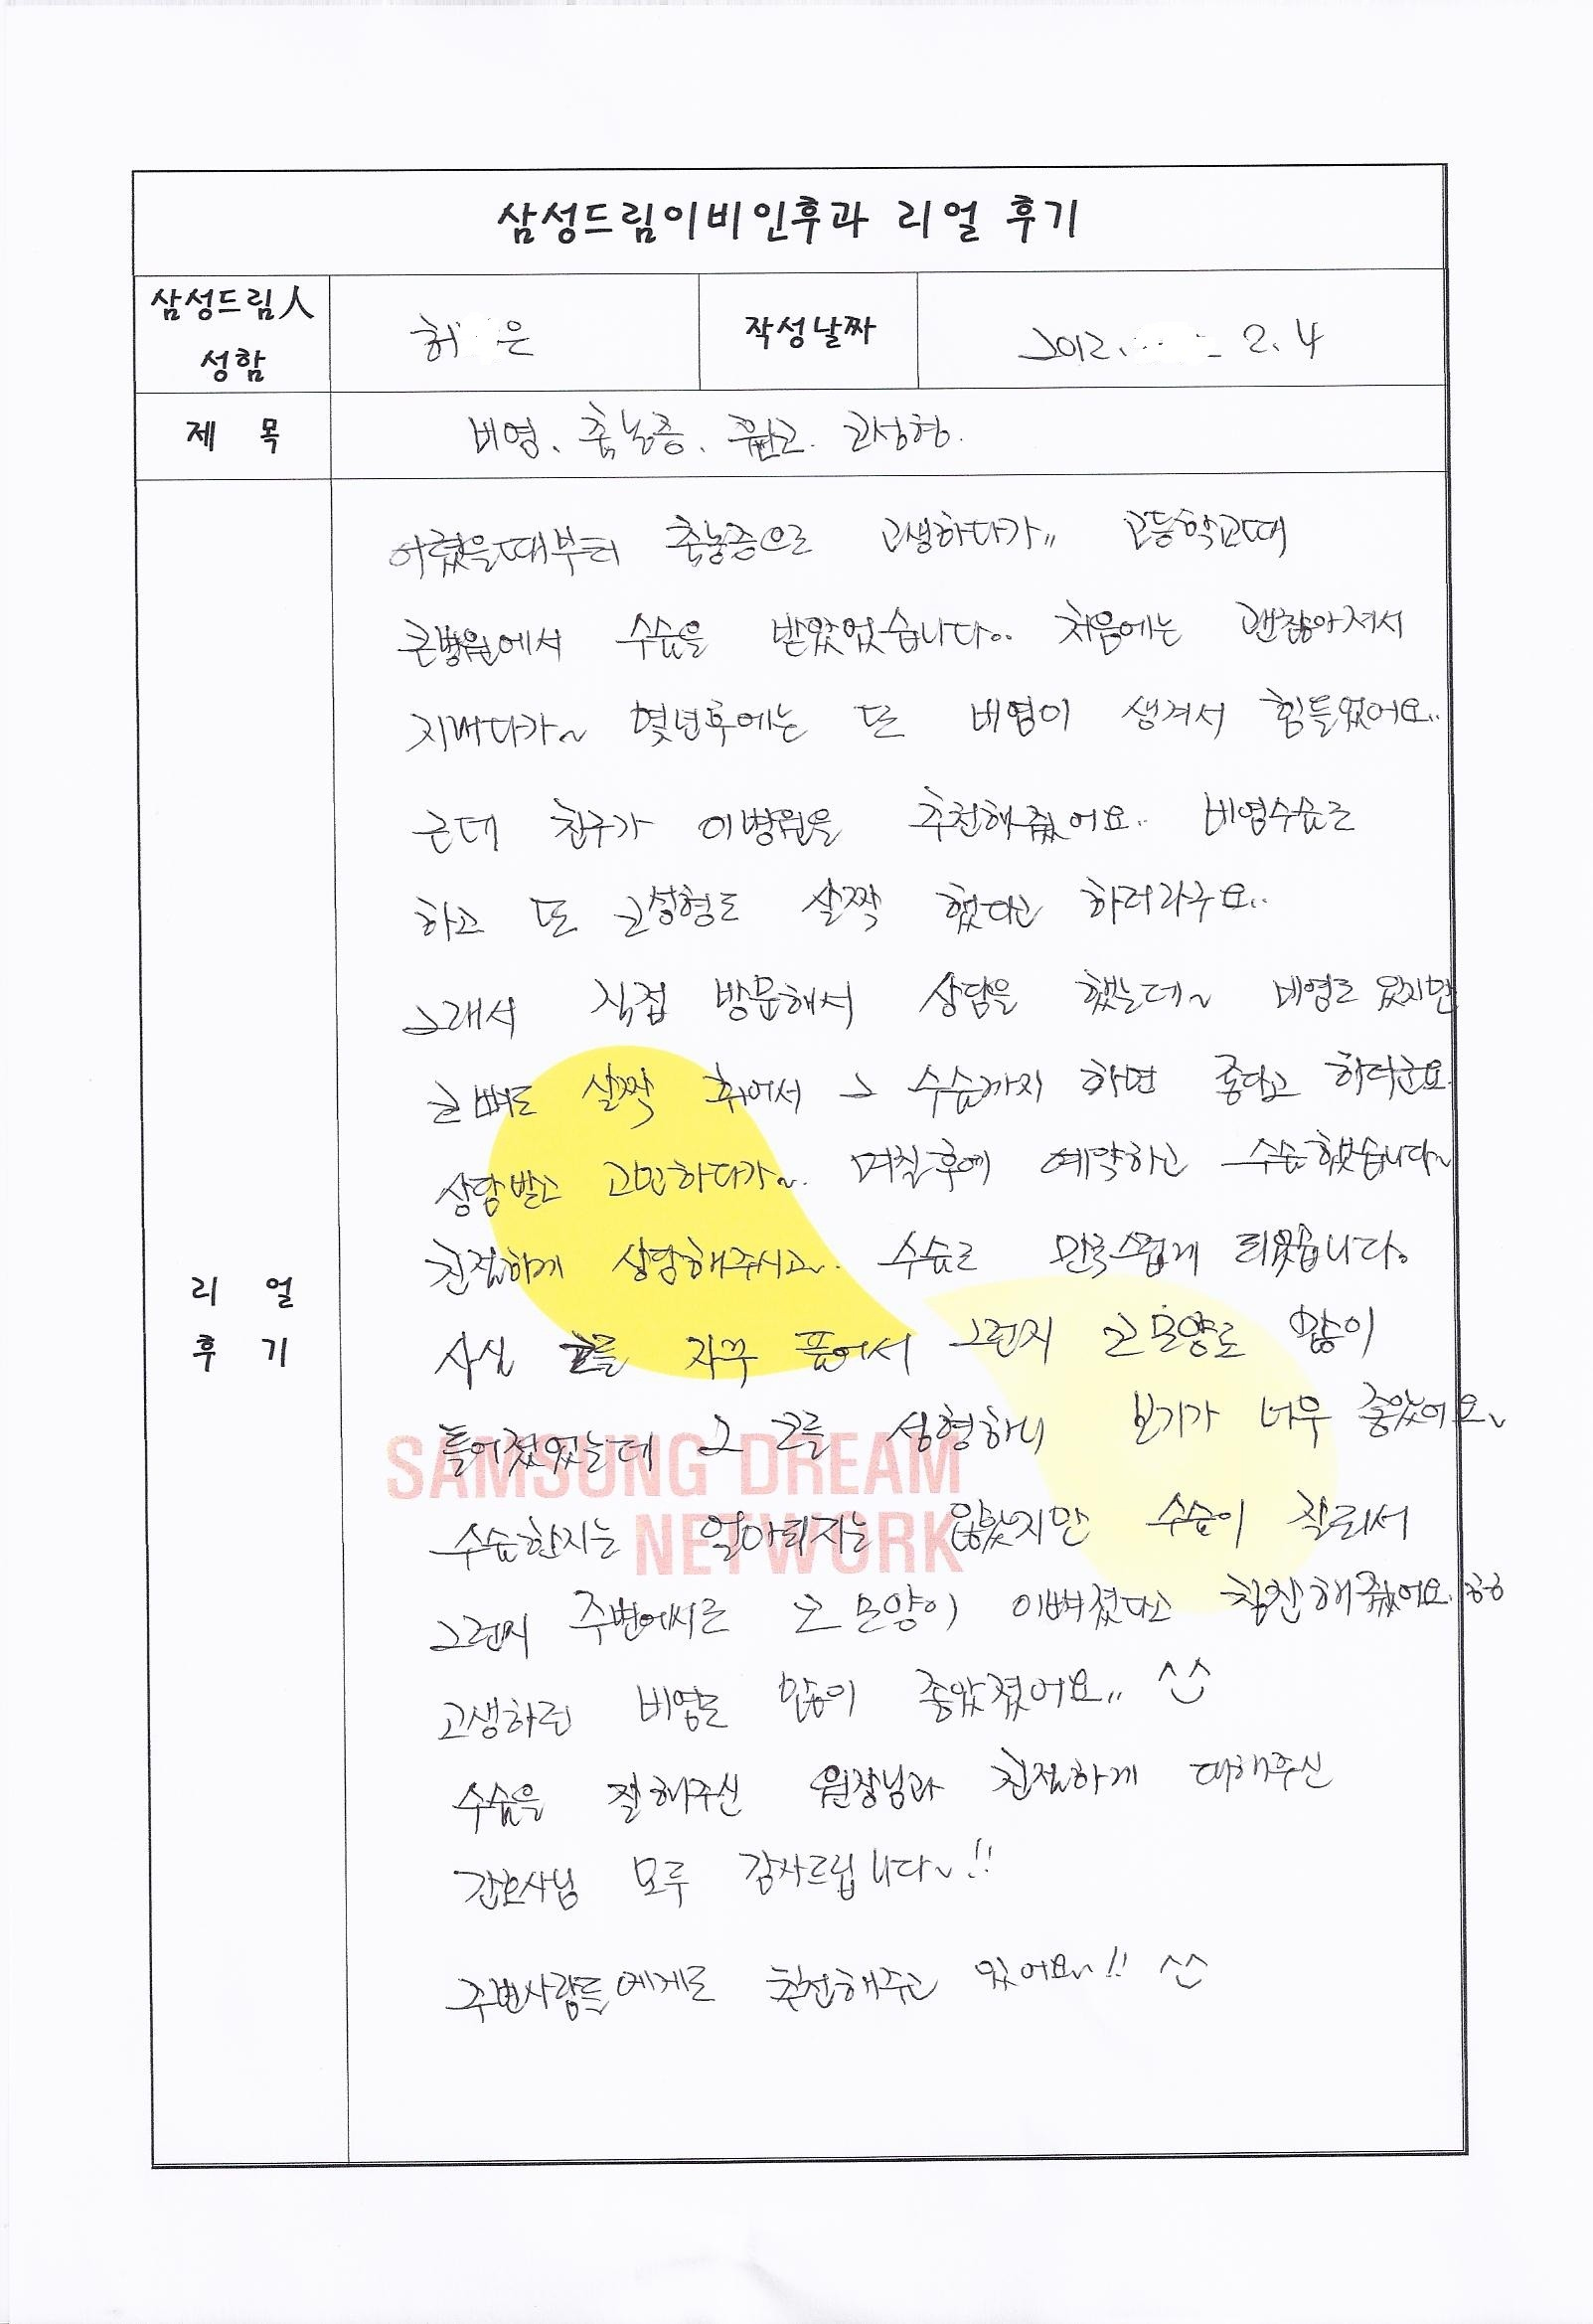 삼성드림이비인후과 리얼 후기
삼성드림人
성함
허 은
작성날짜
2012. 2. 4
제 목
비염. 축농증. 휜코. 코성형.
어렸을때부터 축농증으로 고생하다가.. 고등학교때
큰병원에서 수술을 받았었습니다.. 처음에는 괜찮아져서
지내다가~ 몇년후에는 또 비염이 생겨서 힘들었어요..
근데 친구가 이병원을 추천해줬어요.. 비염수술도
하고 또 코성형도 살짝 했다고 하더라구요..
그래서 직접 방문해서 상담을 했는데~ 비염도 있지만
코뼈도 살짝 휘어서 그 수술까지 하면 좋다고 하더군요
상담받고 고민하다가~.. 며칠후에 예약하고 수술했습니다~
친절하게 상담해주시고~.. 수술도 만족스럽게 되었습니다.
리 얼
후 기
사실 코를 자꾸 풀어서 그런지 코모양도 많이
틀어졌었는데 그 코를 성형하니 보기가 너무 좋았어요~
수술한지는 얼마되지는 않았지만 수술이 잘되서
그런지 주변에서도 코모양이 이뻐졌다고 칭찬해줬어요.ㅎㅎ
고생하던 비염도 많이 좋아졌어요.. ^^
수술을 잘해주신 원장님과 친절하게 대해주신
간호사님 모두 감사드립니다~!!
주변사람들에게도 추천해주고 있어요~!! ^^
SAMSUNG DREAM
NETWORK